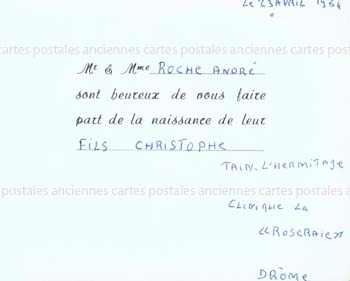 LE 23 AVRIL 1964
cartes postales anciennes cartes postales anciennes cartes postales
Mr & Mme ROCHE ANDRÉ
sont heureux de vous faire
part de la naissance de leur
FILS CHRISTOPHE
TAIN-L'HERMITAGE
cartes postales anciennes cartes postales anciennes cartes postales
CLINIQUE LA
"ROSERAIE"
DRÔME